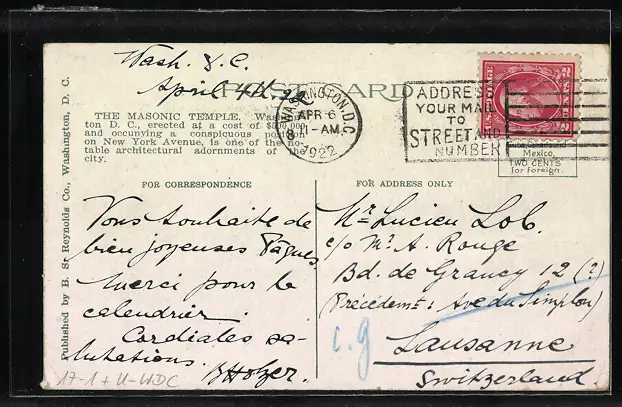 Wash. D.C.
April 4th. 22
POST CARD
WASHINGTON, D.C.
APR 6
1922
ADDRESS
YOUR MAIL
TO
STREET AND
NUMBER
THE MASONIC TEMPLE, Washing-
ton D. C., erected at a cost of $500,000
and occupying a conspicuous position
on New York Avenue, is one of the no-
table architectural adornments of the
city.
Mexico.
TWO CENTS
for Foreign.
Published by B. S. Reynolds Co., Washington, D. C.
FOR CORRESPONDENCE
Vous souhaite de
bien joyeuses Pâques,
merci pour le
calendrier.
Cordiales sa-
lutations.
B Holzer.
17-1 + U-WDC
FOR ADDRESS ONLY
Mr Lucien Lob.
c/o Mr. A. Rouge
Bd. de Grancy 12 (?)
(Précédemt: Ave du Simplon)
c.g
Lausanne
Switzerland.